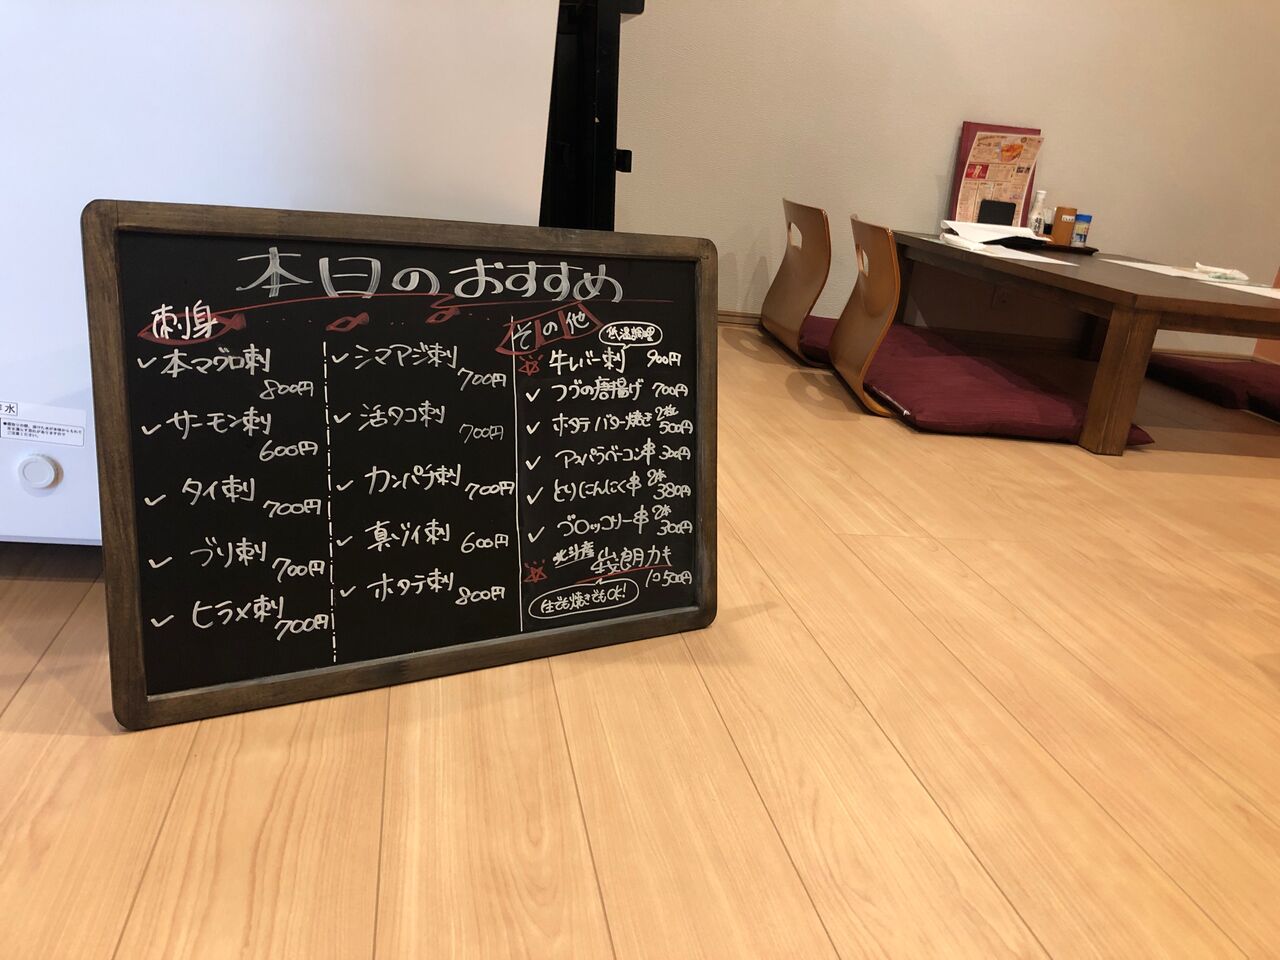 本日のおすすめ
刺身
本マグロ刺
800円
サーモン刺
600円
タイ刺
700円
ブリ刺
700円
ヒラメ刺
700円
シマアジ刺
700円
活タコ刺
700円
カンパチ刺
700円
真ゾイ刺
600円
ホタテ刺
800円
その他
低温調理
牛レバー刺 900円
つぶの唐揚げ 700円
ホタテバター焼き 2本 500円
アスパラベーコン串 300円
とりにんにく串 2本 380円
ブロッコリー串 2本 300円
北斗産
峩朗カキ
1コ500円
生でも焼きでもOK!
水